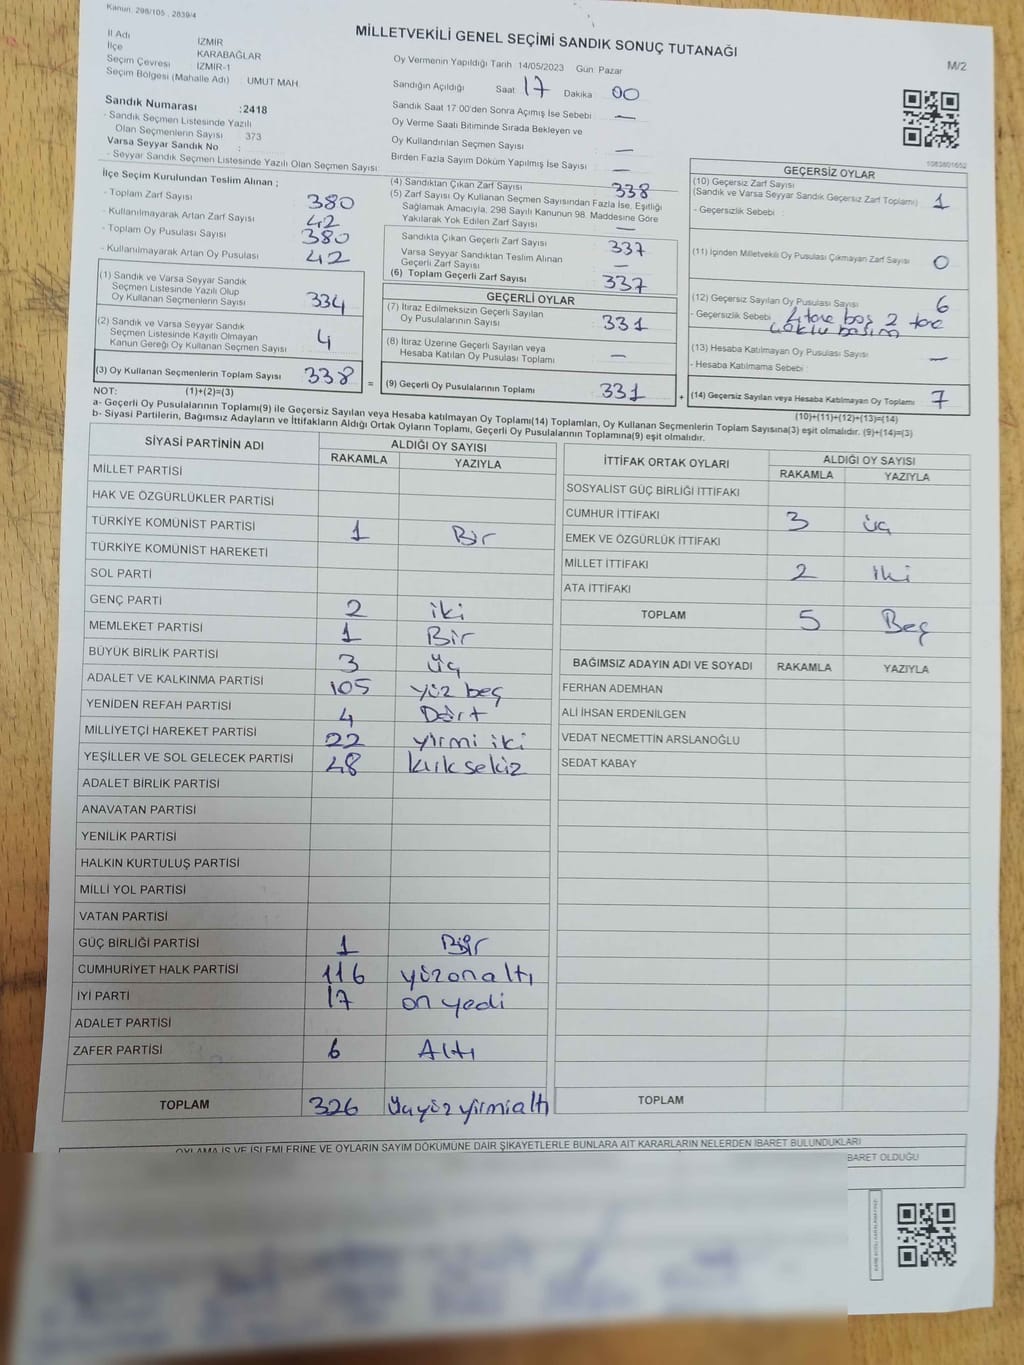 Kanun: 298/105 , 2839/4
MİLLETVEKİLİ GENEL SEÇİMİ SANDIK SONUÇ TUTANAĞI
M/2
İl Adı İZMİR
İlçe KARABAĞLAR
Seçim Çevresi İZMİR-1
Seçim Bölgesi (Mahalle Adı) : UMUT MAH
Sandık Numarası :2418
- Sandık Seçmen Listesinde Yazılı
Olan Seçmenlerin Sayısı : 373
Varsa Seyyar Sandık No :
- Seyyar Sandık Seçmen Listesinde Yazılı Olan Seçmen Sayısı:
Oy Vermenin Yapıldığı Tarih :14/05/2023 Gün: Pazar
Sandığın Açıldığı Saat 17 Dakika 00
Sandık Saat 17:00'den Sonra Açımış İse Sebebi —
Oy Verme Saati Bitiminde Sırada Bekleyen ve
Oy Kullandırılan Seçmen Sayısı —
Birden Fazla Sayım Döküm Yapılmış İse Sayısı —
İlçe Seçim Kurulundan Teslim Alınan ;
- Toplam Zarf Sayısı 380
- Kullanılmayarak Artan Zarf Sayısı 42
- Toplam Oy Pusulası Sayısı 380
- Kullanılmayarak Artan Oy Pusulası 42
(1) Sandık ve Varsa Seyyar Sandık
Seçmen Listesinde Yazılı Olup
Oy Kullanan Seçmenlerin Sayısı 334
(2) Sandık ve Varsa Seyyar Sandık
Seçmen Listesinde Kayıtlı Olmayan
Kanun Gereği Oy Kullanan Seçmen Sayısı 4
(3) Oy Kullanan Seçmenlerin Toplam Sayısı 338 =
NOT: (1)+(2)=(3)
(4) Sandıktan Çıkan Zarf Sayısı 338
(5) Zarf Sayısı Oy Kullanan Seçmen Sayısından Fazla İse, Eşitliği
Sağlamak Amacıyla, 298 Sayılı Kanunun 98. Maddesine Göre
Yakılarak Yok Edilen Zarf Sayısı —
Sandıkta Çıkan Geçerli Zarf Sayısı 337
Varsa Seyyar Sandıktan Teslim Alınan
Geçerli Zarf Sayısı —
(6) Toplam Geçerli Zarf Sayısı 337
GEÇERLİ OYLAR
(7) İtiraz Edilmeksizin Geçerli Sayılan
Oy Pusulalarının Sayısı 331
(8) İtiraz Üzerine Geçerli Sayılan veya
Hesaba Katılan Oy Pusulası Toplamı —
(9) Geçerli Oy Pusulalarının Toplamı 331 +
1083801652
GEÇERSİZ OYLAR
(10) Geçersiz Zarf Sayısı
(Sandık ve Varsa Seyyar Sandık Geçersiz Zarf Toplamı) 1
- Geçersizlik Sebebi :
(11) İçinden Milletvekili Oy Pusulası Çıkmayan Zarf Sayısı 0
(12) Geçersiz Sayılan Oy Pusulası Sayısı 6
- Geçersizlik Sebebi : 4 tane boş 2 tane
çoklu basım
(13) Hesaba Katılmayan Oy Pusulası Sayısı —
- Hesaba Katılmama Sebebi :
(14) Geçersiz Sayılan veya Hesaba Katılmayan Oy Toplamı 7
(10)+(11)+(12)+(13)=(14)
a- Geçerli Oy Pusulalarının Toplamı(9) ile Geçersiz Sayılan veya Hesaba katılmayan Oy Toplamı(14) Toplamları, Oy Kullanan Seçmenlerin Toplam Sayısına(3) eşit olmalıdır. (9)+(14)=(3)
b- Siyasi Partilerin, Bağımsız Adayların ve İttifakların Aldığı Ortak Oyların Toplamı, Geçerli Oy Pusulalarının Toplamına(9) eşit olmalıdır.
SİYASİ PARTİNİN ADI ALDIĞI OY SAYISI
RAKAMLA YAZIYLA
MİLLET PARTİSİ
HAK VE ÖZGÜRLÜKLER PARTİSİ
TÜRKİYE KOMÜNİST PARTİSİ 1 Bir
TÜRKİYE KOMÜNİST HAREKETİ
SOL PARTİ
GENÇ PARTİ 2 iki
MEMLEKET PARTİSİ 1 Bir
BÜYÜK BİRLİK PARTİSİ 3 Üç
ADALET VE KALKINMA PARTİSİ 105 yüz beş
YENİDEN REFAH PARTİSİ 4 Dört
MİLLİYETÇİ HAREKET PARTİSİ 22 yirmi iki
YEŞİLLER VE SOL GELECEK PARTİSİ 48 kırk sekiz
ADALET BİRLİK PARTİSİ
ANAVATAN PARTİSİ
YENİLİK PARTİSİ
HALKIN KURTULUŞ PARTİSİ
MİLLİ YOL PARTİSİ
VATAN PARTİSİ
GÜÇ BİRLİĞİ PARTİSİ 1 Bir
CUMHURİYET HALK PARTİSİ 116 yüzonaltı
İYİ PARTİ 17 on yedi
ADALET PARTİSİ
ZAFER PARTİSİ 6 Altı
TOPLAM 326 Üçyüz yirmialtı
İTTİFAK ORTAK OYLARI ALDIĞI OY SAYISI
RAKAMLA YAZIYLA
SOSYALİST GÜÇ BİRLİĞİ İTTİFAKI
CUMHUR İTTİFAKI 3 üç
EMEK VE ÖZGÜRLÜK İTTİFAKI
MİLLET İTTİFAKI 2 iki
ATA İTTİFAKI
TOPLAM 5 Beş
BAĞIMSIZ ADAYIN ADI VE SOYADI RAKAMLA YAZIYLA
FERHAN ADEMHAN
ALİ İHSAN ERDENİLGEN
VEDAT NECMETTİN ARSLANOĞLU
SEDAT KABAY
TOPLAM
OYLAMA İŞ VE İŞLEMLERİNE VE OYLARIN SAYIM DÖKÜMÜNE DAİR ŞİKAYETLERLE BUNLARA AİT KARARLARIN NELERDEN İBARET BULUNDUKLARI
BARET OLDUĞU